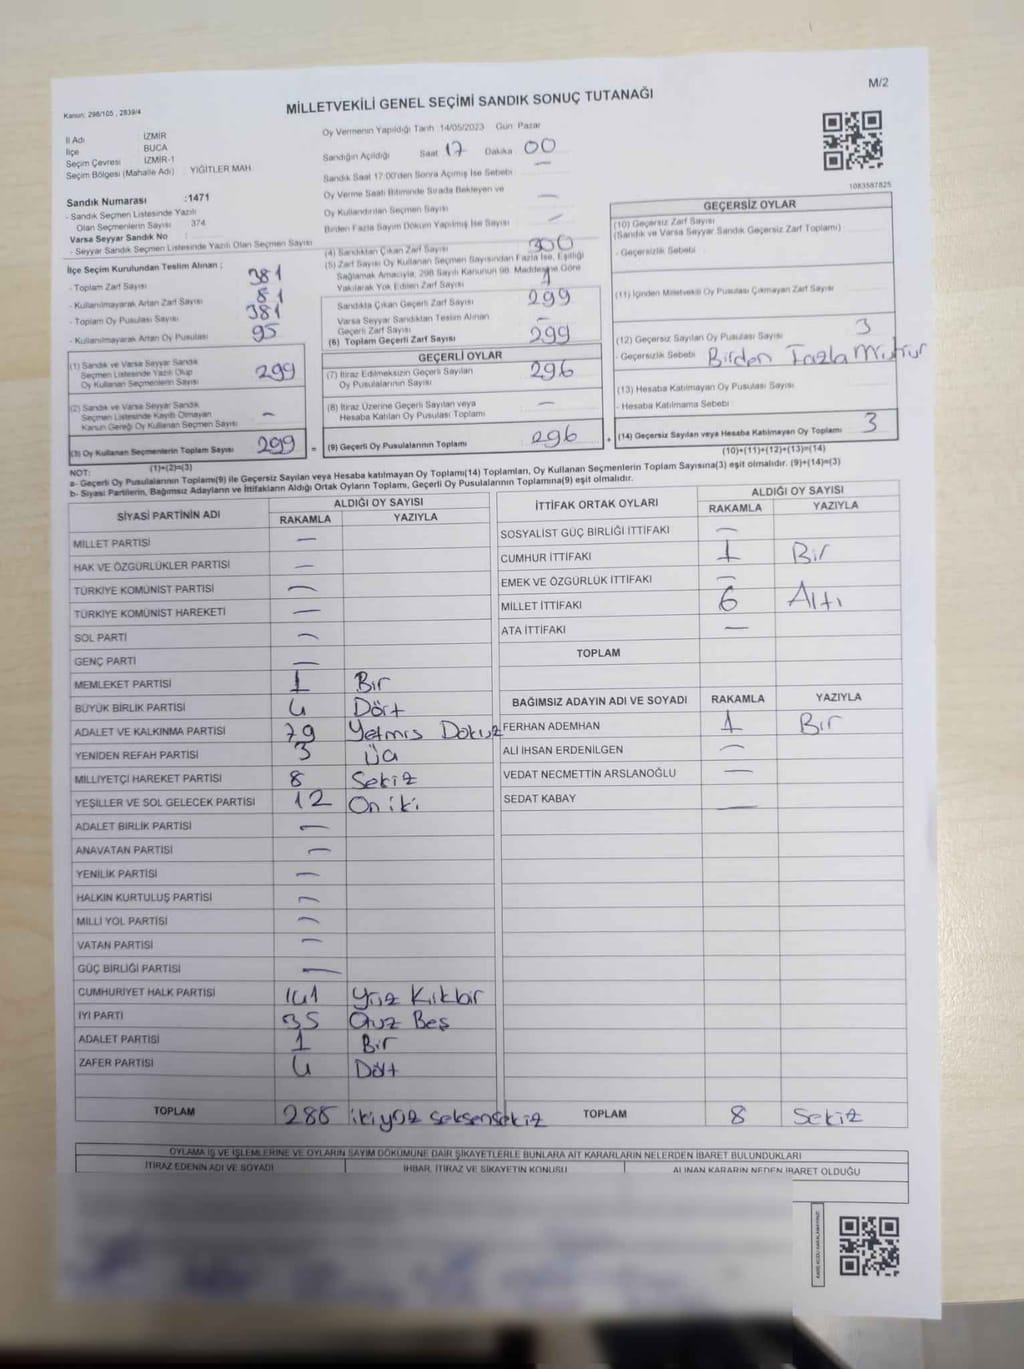 M/2
Kanun: 298/105 , 2839/4
MİLLETVEKİLİ GENEL SEÇİMİ SANDIK SONUÇ TUTANAĞI
İl Adı İZMİR
İlçe BUCA
Seçim Çevresi İZMİR-1
Seçim Bölgesi (Mahalle Adı) : YİĞİTLER MAH.
Oy Vermenin Yapıldığı Tarih :14/05/2023 Gün: Pazar
Sandığın Açıldığı Saat 17 Dakika 00
Sandık Saat 17:00'den Sonra Açımış İse Sebebi —
Oy Verme Saati Bitiminde Sırada Bekleyen ve
Oy Kullandırılan Seçmen Sayısı —
Birden Fazla Sayım Döküm Yapılmış İse Sayısı —
1083587825
Sandık Numarası :1471
- Sandık Seçmen Listesinde Yazılı
Olan Seçmenlerin Sayısı : 374
Varsa Seyyar Sandık No :
- Seyyar Sandık Seçmen Listesinde Yazılı Olan Seçmen Sayısı
İlçe Seçim Kurulundan Teslim Alınan :
- Toplam Zarf Sayısı 381
- Kullanılmayarak Artan Zarf Sayısı 81
- Toplam Oy Pusulası Sayısı 381
- Kullanılmayarak Artan Oy Pusulası 95
(1) Sandık ve Varsa Seyyar Sandık
Seçmen Listesinde Yazılı Olup
Oy Kullanan Seçmenlerin Sayısı 299
(2) Sandık ve Varsa Seyyar Sandık
Seçmen Listesinde Kayıtlı Olmayan
Kanun Gereği Oy Kullanan Seçmen Sayısı —
(3) Oy Kullanan Seçmenlerin Toplam Sayısı 299 =
(1)+(2)=(3)
(4) Sandıktan Çıkan Zarf Sayısı 300
(5) Zarf Sayısı Oy Kullanan Seçmen Sayısından Fazla İse, Eşitliği
Sağlamak Amacıyla, 298 Sayılı Kanunun 98. Maddesine Göre
Yakılarak Yok Edilen Zarf Sayısı 1
Sandıkta Çıkan Geçerli Zarf Sayısı 299
Varsa Seyyar Sandıktan Teslim Alınan
Geçerli Zarf Sayısı —
(6) Toplam Geçerli Zarf Sayısı 299
GEÇERLİ OYLAR
(7) İtiraz Edilmeksizin Geçerli Sayılan
Oy Pusulalarının Sayısı 296
(8) İtiraz Üzerine Geçerli Sayılan veya
Hesaba Katılan Oy Pusulası Toplamı —
(9) Geçerli Oy Pusulalarının Toplamı 296 +
GEÇERSİZ OYLAR
(10) Geçersiz Zarf Sayısı
(Sandık ve Varsa Seyyar Sandık Geçersiz Zarf Toplamı)
- Geçersizlik Sebebi :
(11) İçinden Milletvekili Oy Pusulası Çıkmayan Zarf Sayısı
(12) Geçersiz Sayılan Oy Pusulası Sayısı 3
- Geçersizlik Sebebi : Birden Fazla Mühür
(13) Hesaba Katılmayan Oy Pusulası Sayısı
- Hesaba Katılmama Sebebi :
(14) Geçersiz Sayılan veya Hesaba Katılmayan Oy Toplamı 3
(10)+(11)+(12)+(13)=(14)
NOT:
a- Geçerli Oy Pusulalarının Toplamı(9) ile Geçersiz Sayılan veya Hesaba katılmayan Oy Toplamı(14) Toplamları, Oy Kullanan Seçmenlerin Toplam Sayısına(3) eşit olmalıdır. (9)+(14)=(3)
b- Siyasi Partilerin, Bağımsız Adayların ve İttifakların Aldığı Ortak Oyların Toplamı, Geçerli Oy Pusulalarının Toplamına(9) eşit olmalıdır.
SİYASİ PARTİNİN ADI ALDIĞI OY SAYISI
RAKAMLA YAZIYLA
MİLLET PARTİSİ —
HAK VE ÖZGÜRLÜKLER PARTİSİ —
TÜRKİYE KOMÜNİST PARTİSİ —
TÜRKİYE KOMÜNİST HAREKETİ —
SOL PARTİ —
GENÇ PARTİ —
MEMLEKET PARTİSİ 1 Bir
BÜYÜK BİRLİK PARTİSİ 4 Dört
ADALET VE KALKINMA PARTİSİ 79 Yetmiş Dokuz
YENİDEN REFAH PARTİSİ 3 Üç
MİLLİYETÇİ HAREKET PARTİSİ 8 Sekiz
YEŞİLLER VE SOL GELECEK PARTİSİ 12 On iki
ADALET BİRLİK PARTİSİ —
ANAVATAN PARTİSİ —
YENİLİK PARTİSİ —
HALKIN KURTULUŞ PARTİSİ —
MİLLİ YOL PARTİSİ —
VATAN PARTİSİ —
GÜÇ BİRLİĞİ PARTİSİ —
CUMHURİYET HALK PARTİSİ 141 Yüz Kıkbir
İYİ PARTİ 35 Otuz Beş
ADALET PARTİSİ 1 Bir
ZAFER PARTİSİ 4 Dört
TOPLAM 288 ikiyüz seksensekiz
İTTİFAK ORTAK OYLARI ALDIĞI OY SAYISI
RAKAMLA YAZIYLA
SOSYALİST GÜÇ BİRLİĞİ İTTİFAKI —
CUMHUR İTTİFAKI 1 Bir
EMEK VE ÖZGÜRLÜK İTTİFAKI —
MİLLET İTTİFAKI 6 Altı
ATA İTTİFAKI —
TOPLAM
BAĞIMSIZ ADAYIN ADI VE SOYADI RAKAMLA YAZIYLA
FERHAN ADEMHAN 1 Bir
ALİ İHSAN ERDENİLGEN —
VEDAT NECMETTİN ARSLANOĞLU —
SEDAT KABAY —
TOPLAM 8 Sekiz
OYLAMA İŞ VE İŞLEMLERİNE VE OYLARIN SAYIM DÖKÜMÜNE DAİR ŞİKAYETLERLE BUNLARA AİT KARARLARIN NELERDEN İBARET BULUNDUKLARI
İTİRAZ EDENİN ADI VE SOYADI İHBAR, İTİRAZ VE ŞİKAYETİN KONUSU ALINAN KARARIN NEDEN İBARET OLDUĞU